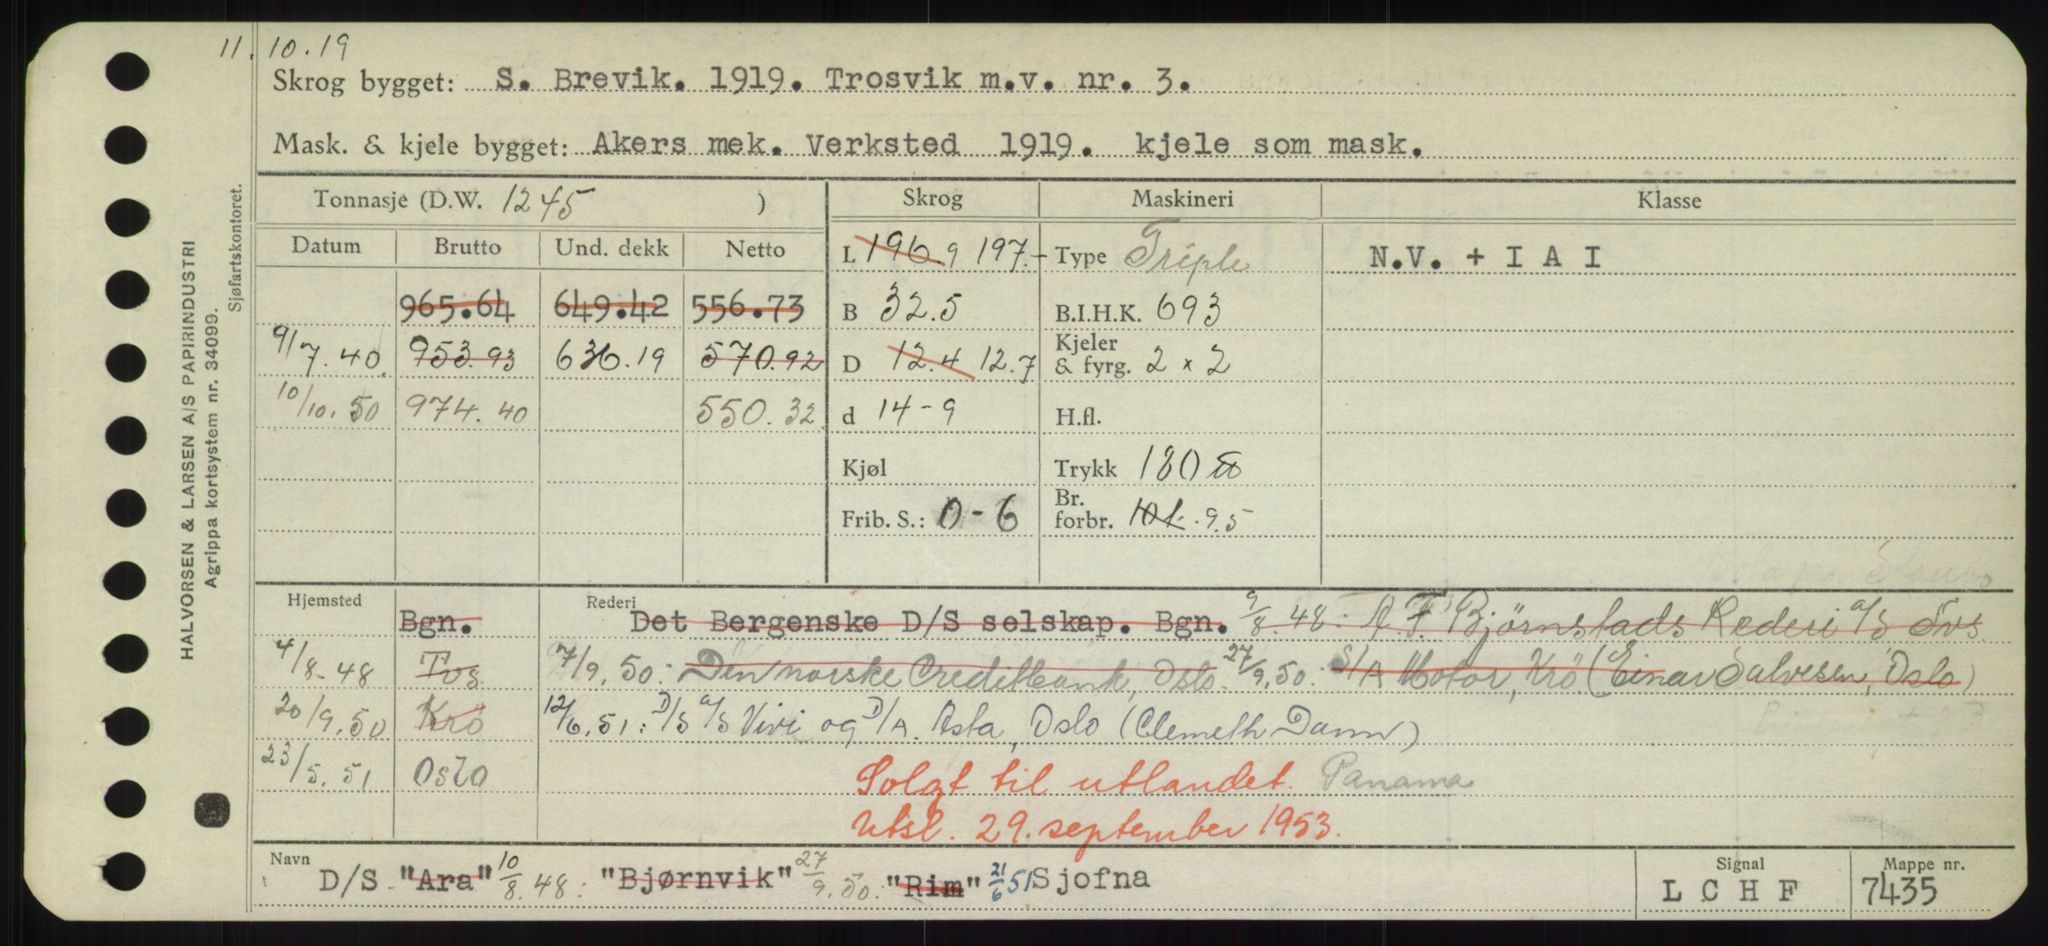 11.10.19
Skrog bygget: S. Brevik. 1919. Trosvik m.v. nr. 3.
Mask. & kjele bygget: Akers mek. Verksted 1919. kjele som mask.
Tonnasje (D.W. 1245 ) Skrog Maskineri Klasse
Datum Brutto Und. dekk Netto L 196 9 197.- Type Triple N.V. + I A I
965.64 649.42 556.73 B 32.5 B.I.H.K. 693
9/7.40. 953.93 636.19 570.92 D 12.4 12.7 Kjeler & fyrg. 2 x 2
10/10.50 974.40 550.32 d 14-9 H.fl.
Kjøl Trykk 180
Frib. S.: 0-6 Br. forbr. 10 t. 9.5
Hjemsted Rederi
Bgn. Det Bergenske D/S selskap. Bgn. 9/8.48: A. F. Bjørnstads Rederi a/s Tvs
4/8-48 Tvs 7/9.50: Den norske Creditbank, Oslo. 27/9.50: S/A Motor, Krö (Einar Salvesen, Oslo)
20/9.50 Krö 12/6.51: D/S a/s Vivi og D/A. Asta, Oslo (Clemeth Damm)
23/5.51 Oslo Solgt til utlandet. Panama
Utsl. 29. september 1953.
Navn D/S "Ara" 10/8.48: "Bjørnvik" 27/9.50: "Rim" 21/6 51 Sjofna
Signal L C H F
Mappe nr. 7435
HALVORSEN & LARSEN A/S PAPIRINDUSTRI
Agrippa kortsystem nr. 34099.
Sjøfartskontoret.